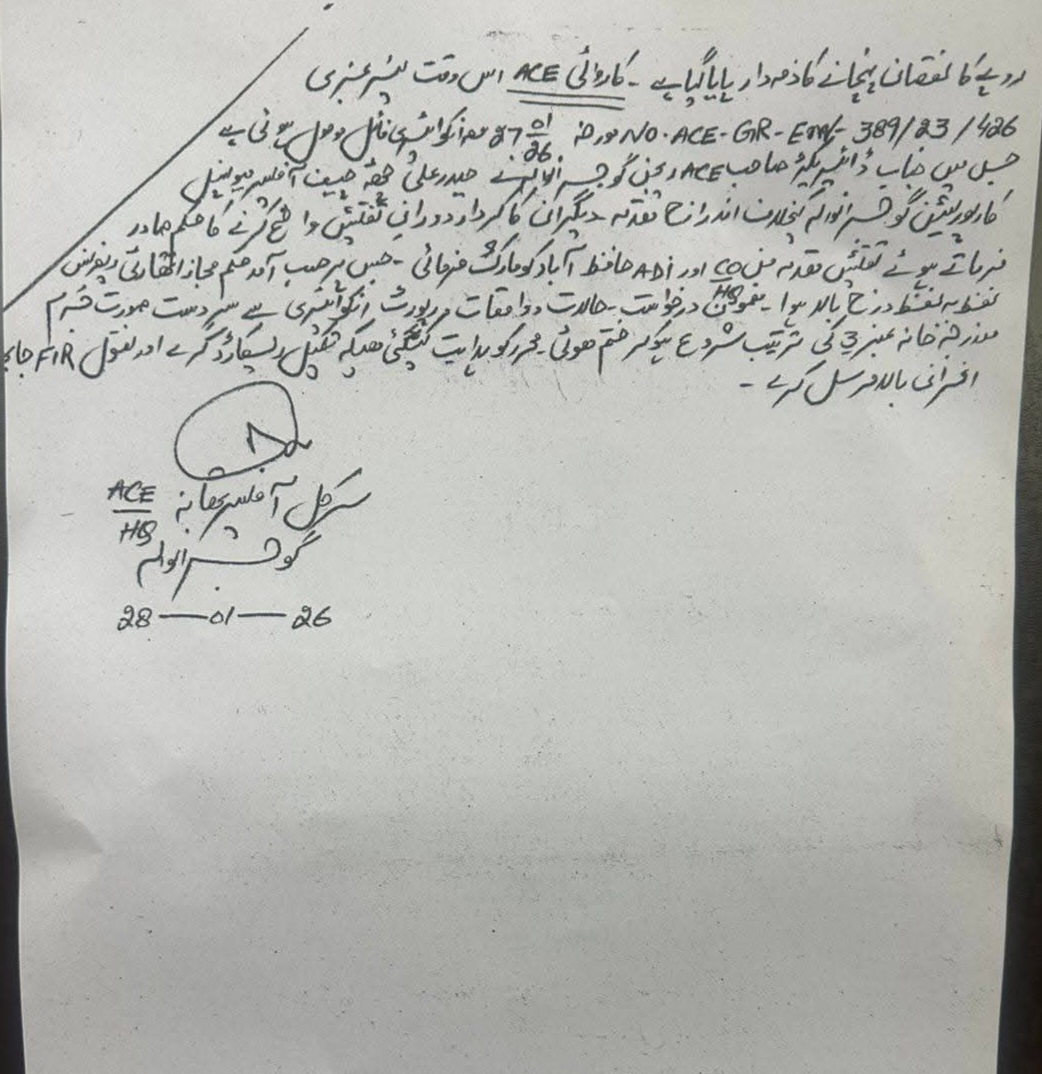 روپے کا نقصان پہنچانے کا ذمہ دار پایا گیا ہے ۔ کاروائی ACE اس وقت لیٹر نمبری
NO. ACE-GR-Enq/- 389/23/426 مورخہ 27 01/26 معہ انکوائری فائل موصول ہوئی ہے
جس میں جناب ڈائریکٹر صاحب ACE ریجن گوجرانوالہ نے حیدر علی چٹھہ چیف آفیسر میونسپل
کارپوریشن گوجرانوالہ بخلاف اندراج مقدمہ دیگران کا کردار دوران تفتیش واضح کرنے کا حکم صادر
فرماتے ہوئے تفتیش مقدمہ CO اور ADI حافظ آباد کو مارک فرمائی ۔ جس پر حسب آمد حکم مجاز اتھارٹی
لفظ بہ لفظ درج بالا ہوا ۔ HQ درخواست ۔ حالات و واقعات رپورٹ انکوائری سے سردست صورت جرم
کی ترتیب شروع ہو کر ختم ہوئی ۔ محرر کو ہدایت کی گئی ھیکہ تکمیل ریکارڈ کرے اور نقول FIR
افسران بالا مرسل کرے ۔
سرکل آفیسر تھانہ ACE/HQ
گوجرانوالہ
28 — 01 — 26